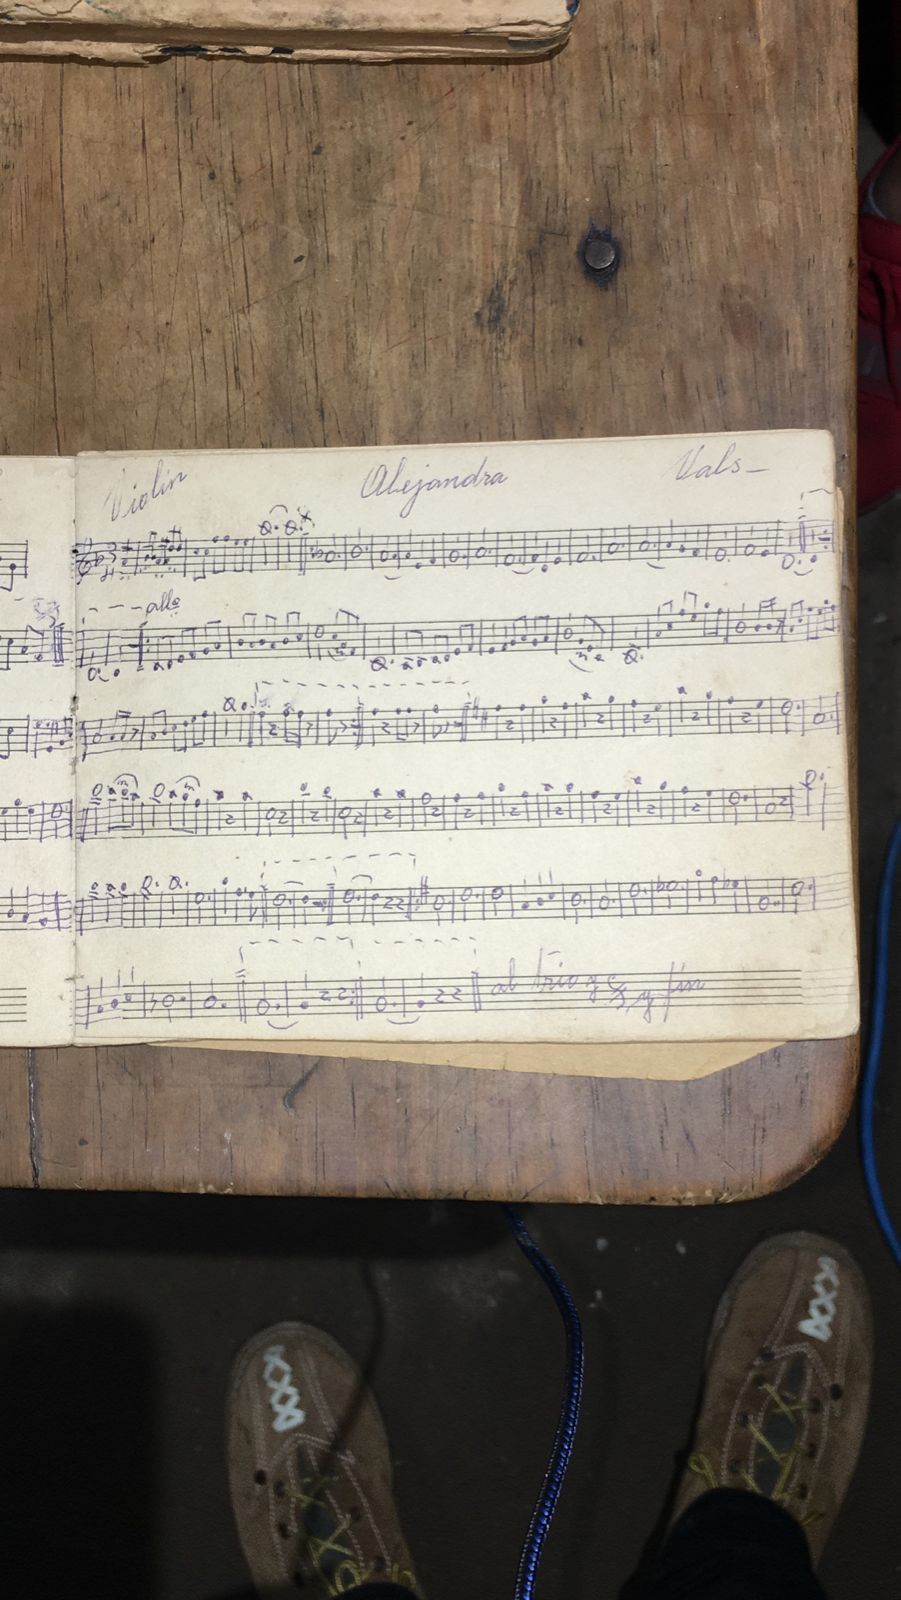 Violin Alejandra Vals-
allo
al trio y y fin